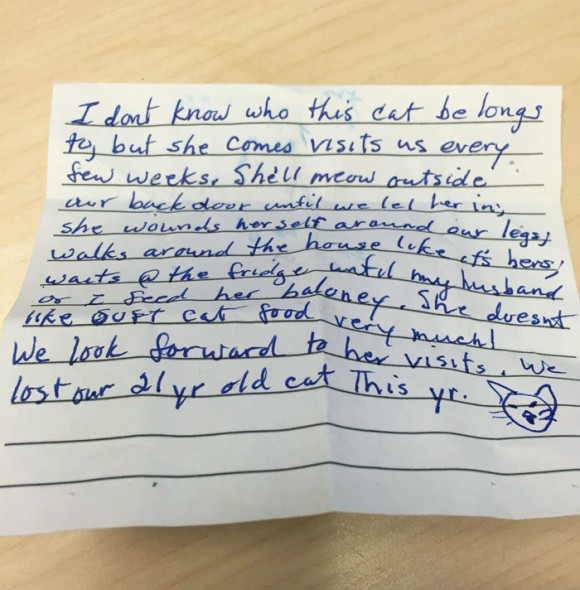 I dont know who this cat belongs
to, but she comes visits us every
few weeks. She'll meow outside
our back door until we let her in;
she wounds herself around our legs;
walks around the house like it's hers;
waits @ the fridge until my husband
or I feed her baloney. She doesnt
like OUFT cat food very much!
We look forward to her visits. We
lost our 21 yr old cat This yr.